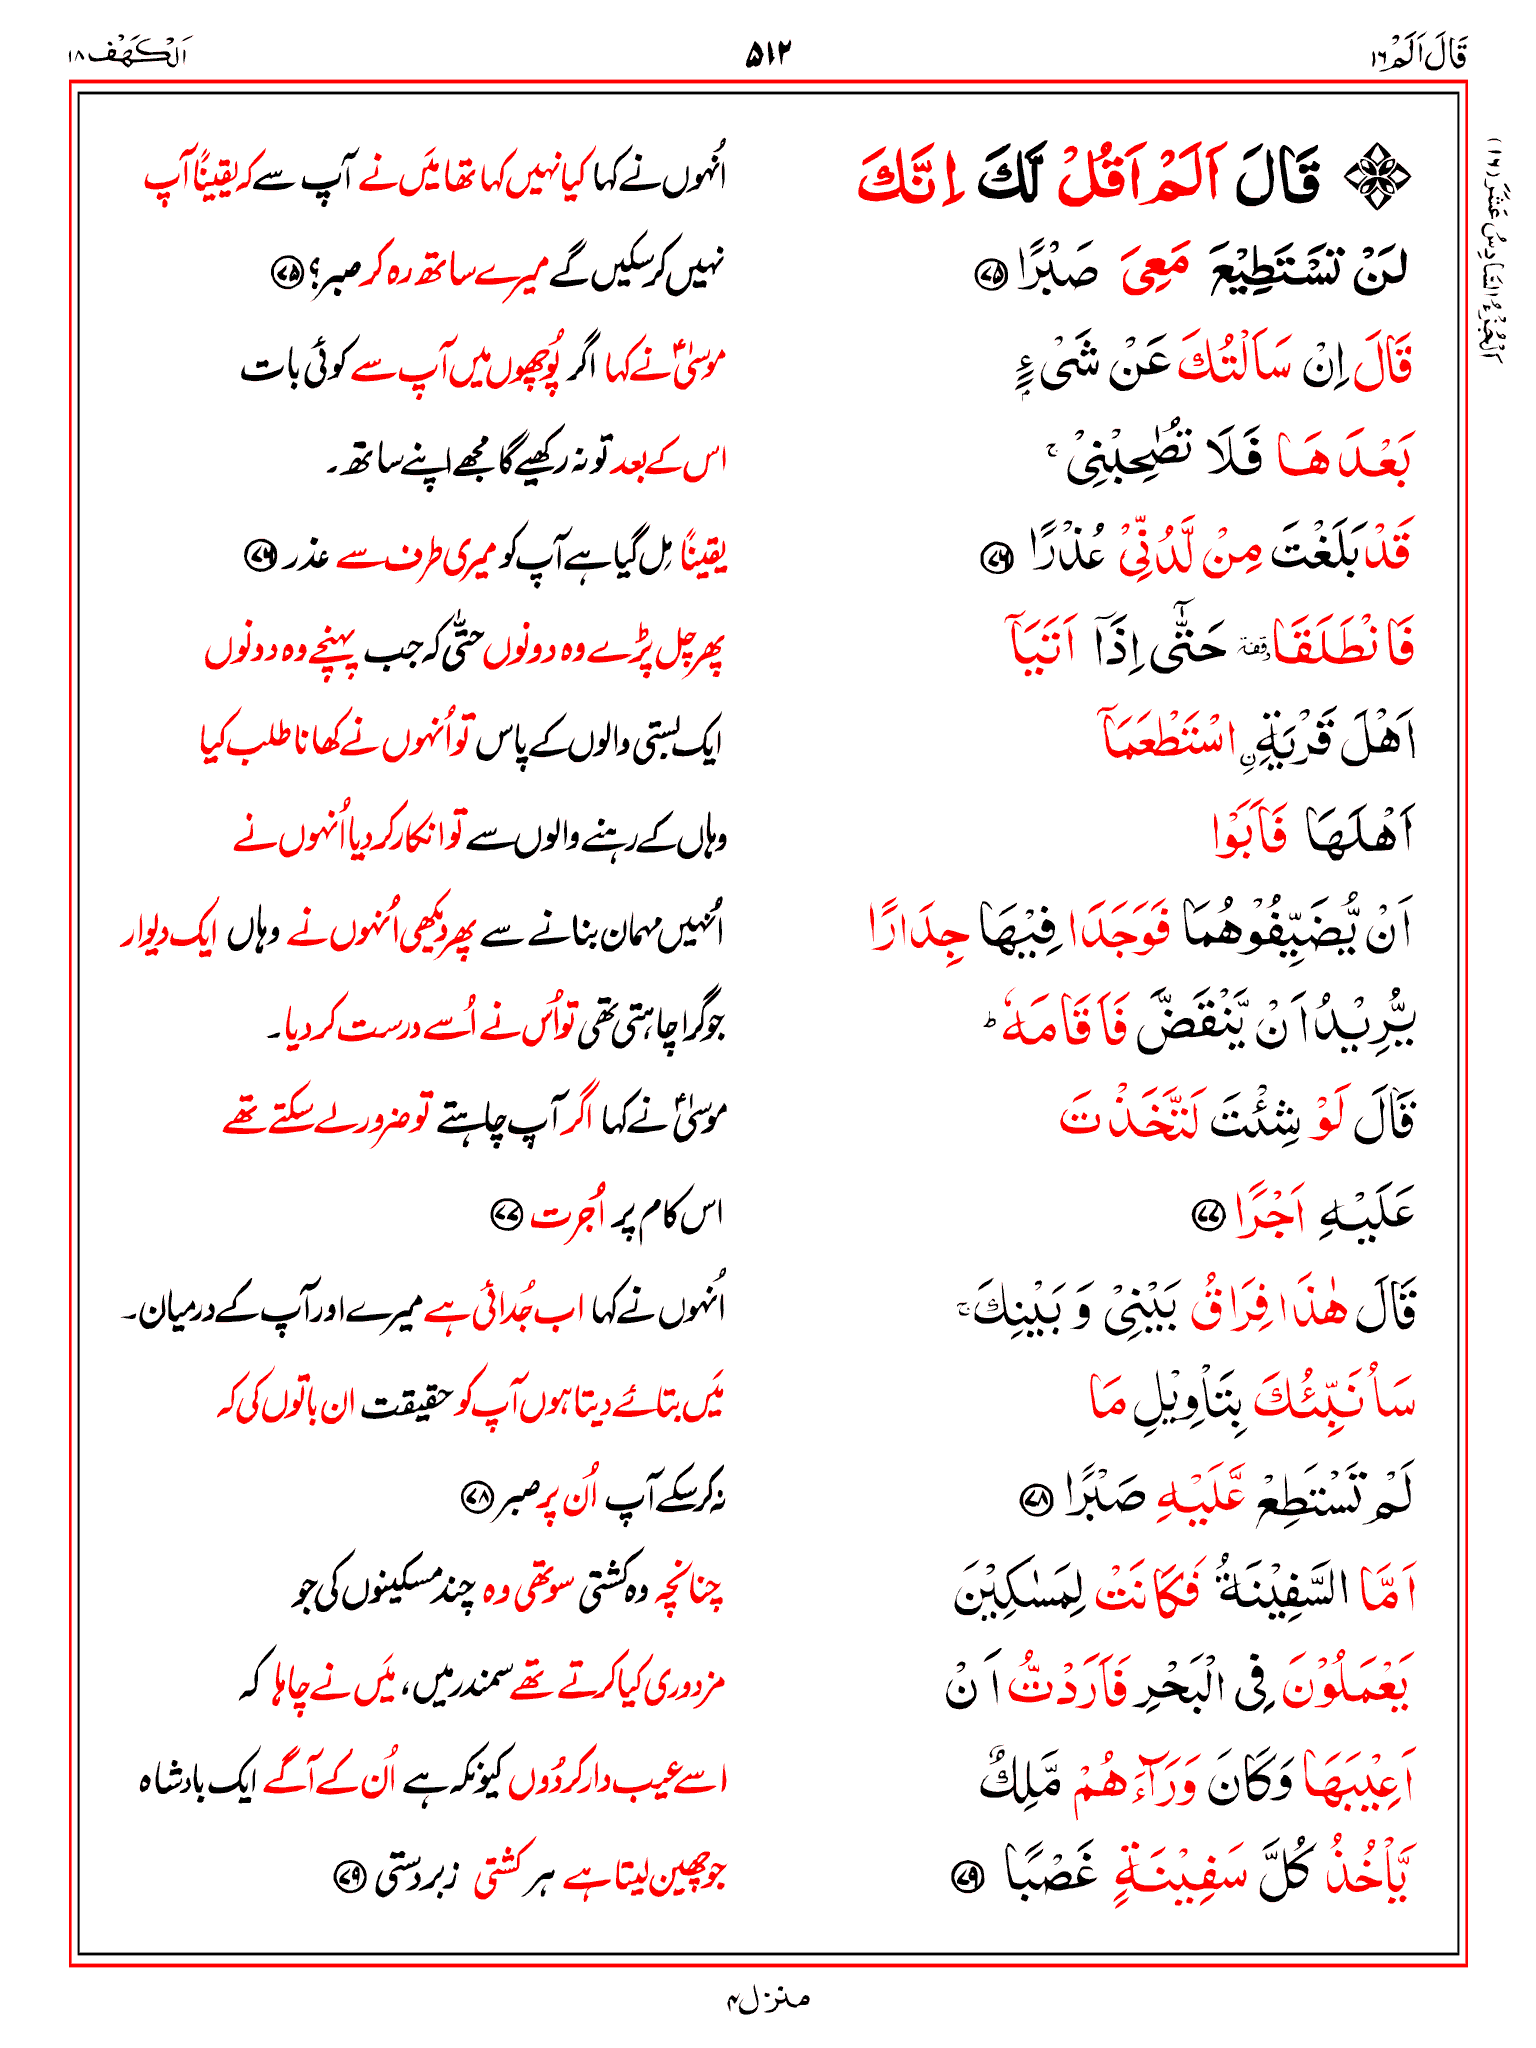 قَالَ اَلَمْ ١٦
٥١٢
اَلْكَهْف ١٨
اَلْجُزْءُ السَّادِسُ عَشَرَ (١٦)
قَالَ اَلَمْ اَقُلْ لَّكَ اِنَّكَ
اُنہوں نے کہا کیا نہیں کہا تھا مَیں نے آپ سے کہ یقیناً آپ
لَنْ تَسْتَطِيْعَ مَعِيَ صَبْرًا ۷۵
نہیں کر سکیں گے میرے ساتھ رہ کر صبر؟ ۷۵
قَالَ اِنْ سَاَلْتُكَ عَنْ شَیْءٍۭ
موسیٰؑ نے کہا اگر پُوچھوں میں آپ سے کوئی بات
بَعْدَهَا فَلَا تُصٰحِبْنِیْ ۚ
اس کے بعد تو نہ رکھیے گا مجھے اپنے ساتھ۔
قَدْ بَلَغْتَ مِنْ لَّدُنِّیْ عُذْرًا ۷۶
یقیناً مِل گیا ہے آپ کو میری طرف سے عذر ۷۶
فَانْطَلَقَا وقفة حَتّٰۤی اِذَاۤ اَتَيَاۤ
پھر چل پڑے وہ دونوں حتّٰی کہ جب پہنچے وہ دونوں
اَهْلَ قَرْيَةِ ۣاسْتَطْعَمَاۤ
ایک بستی والوں کے پاس تو اُنہوں نے کھانا طلب کیا
اَهْلَهَا فَاَبَوْا
وہاں کے رہنے والوں سے تو انکار کر دیا اُنہوں نے
اَنْ يُّضَيِّفُوْهُمَا فَوَجَدَا فِيْهَا جِدَارًا
اُنہیں مہمان بنانے سے پھر دیکھی اُنہوں نے وہاں ایک دیوار
يُّرِيْدُ اَنْ يَّنْقَضَّ فَاَقَامَهٗ ؕ
جو گرا چاہتی تھی تو اُس نے اُسے درست کر دیا۔
قَالَ لَوْ شِئْتَ لَتَّخَذْتَ
موسیٰؑ نے کہا اگر آپ چاہتے تو ضرور لے سکتے تھے
عَلَيْهِ اَجْرًا ۷۷
اس کام پر اُجرت ۷۷
قَالَ هٰذَا فِرَاقُ بَيْنِیْ وَ بَيْنِكَ ۚ
اُنہوں نے کہا اب جُدائی ہے میرے اور آپ کے درمیان۔
سَاُنَبِّئُكَ بِتَاْوِيْلِ مَا
مَیں بتائے دیتا ہوں آپ کو حقیقت ان باتوں کی کہ
لَمْ تَسْتَطِعْ عَّلَيْهِ صَبْرًا ۷۸
نہ کر سکے آپ اُن پر صبر ۷۸
اَمَّا السَّفِيْنَةُ فَكَانَتْ لِمَسٰكِيْنَ
چنانچہ وہ کشتی سو تھی وہ چند مسکینوں کی جو
يَعْمَلُوْنَ فِی الْبَحْرِ فَاَرَدْتُّ اَنْ
مزدوری کیا کرتے تھے سمندر میں، مَیں نے چاہا کہ
اَعِيْبَهَا وَكَانَ وَرَآءَهُمْ مَّلِكٌ
اسے عیب دار کر دُوں کیونکہ ہے اُن کے آگے ایک بادشاہ
يَّاْخُذُ كُلَّ سَفِيْنَةٍ غَصْبًا ۷۹
جو چھین لیتا ہے ہر کشتی زبردستی ۷۹
منزل ۴